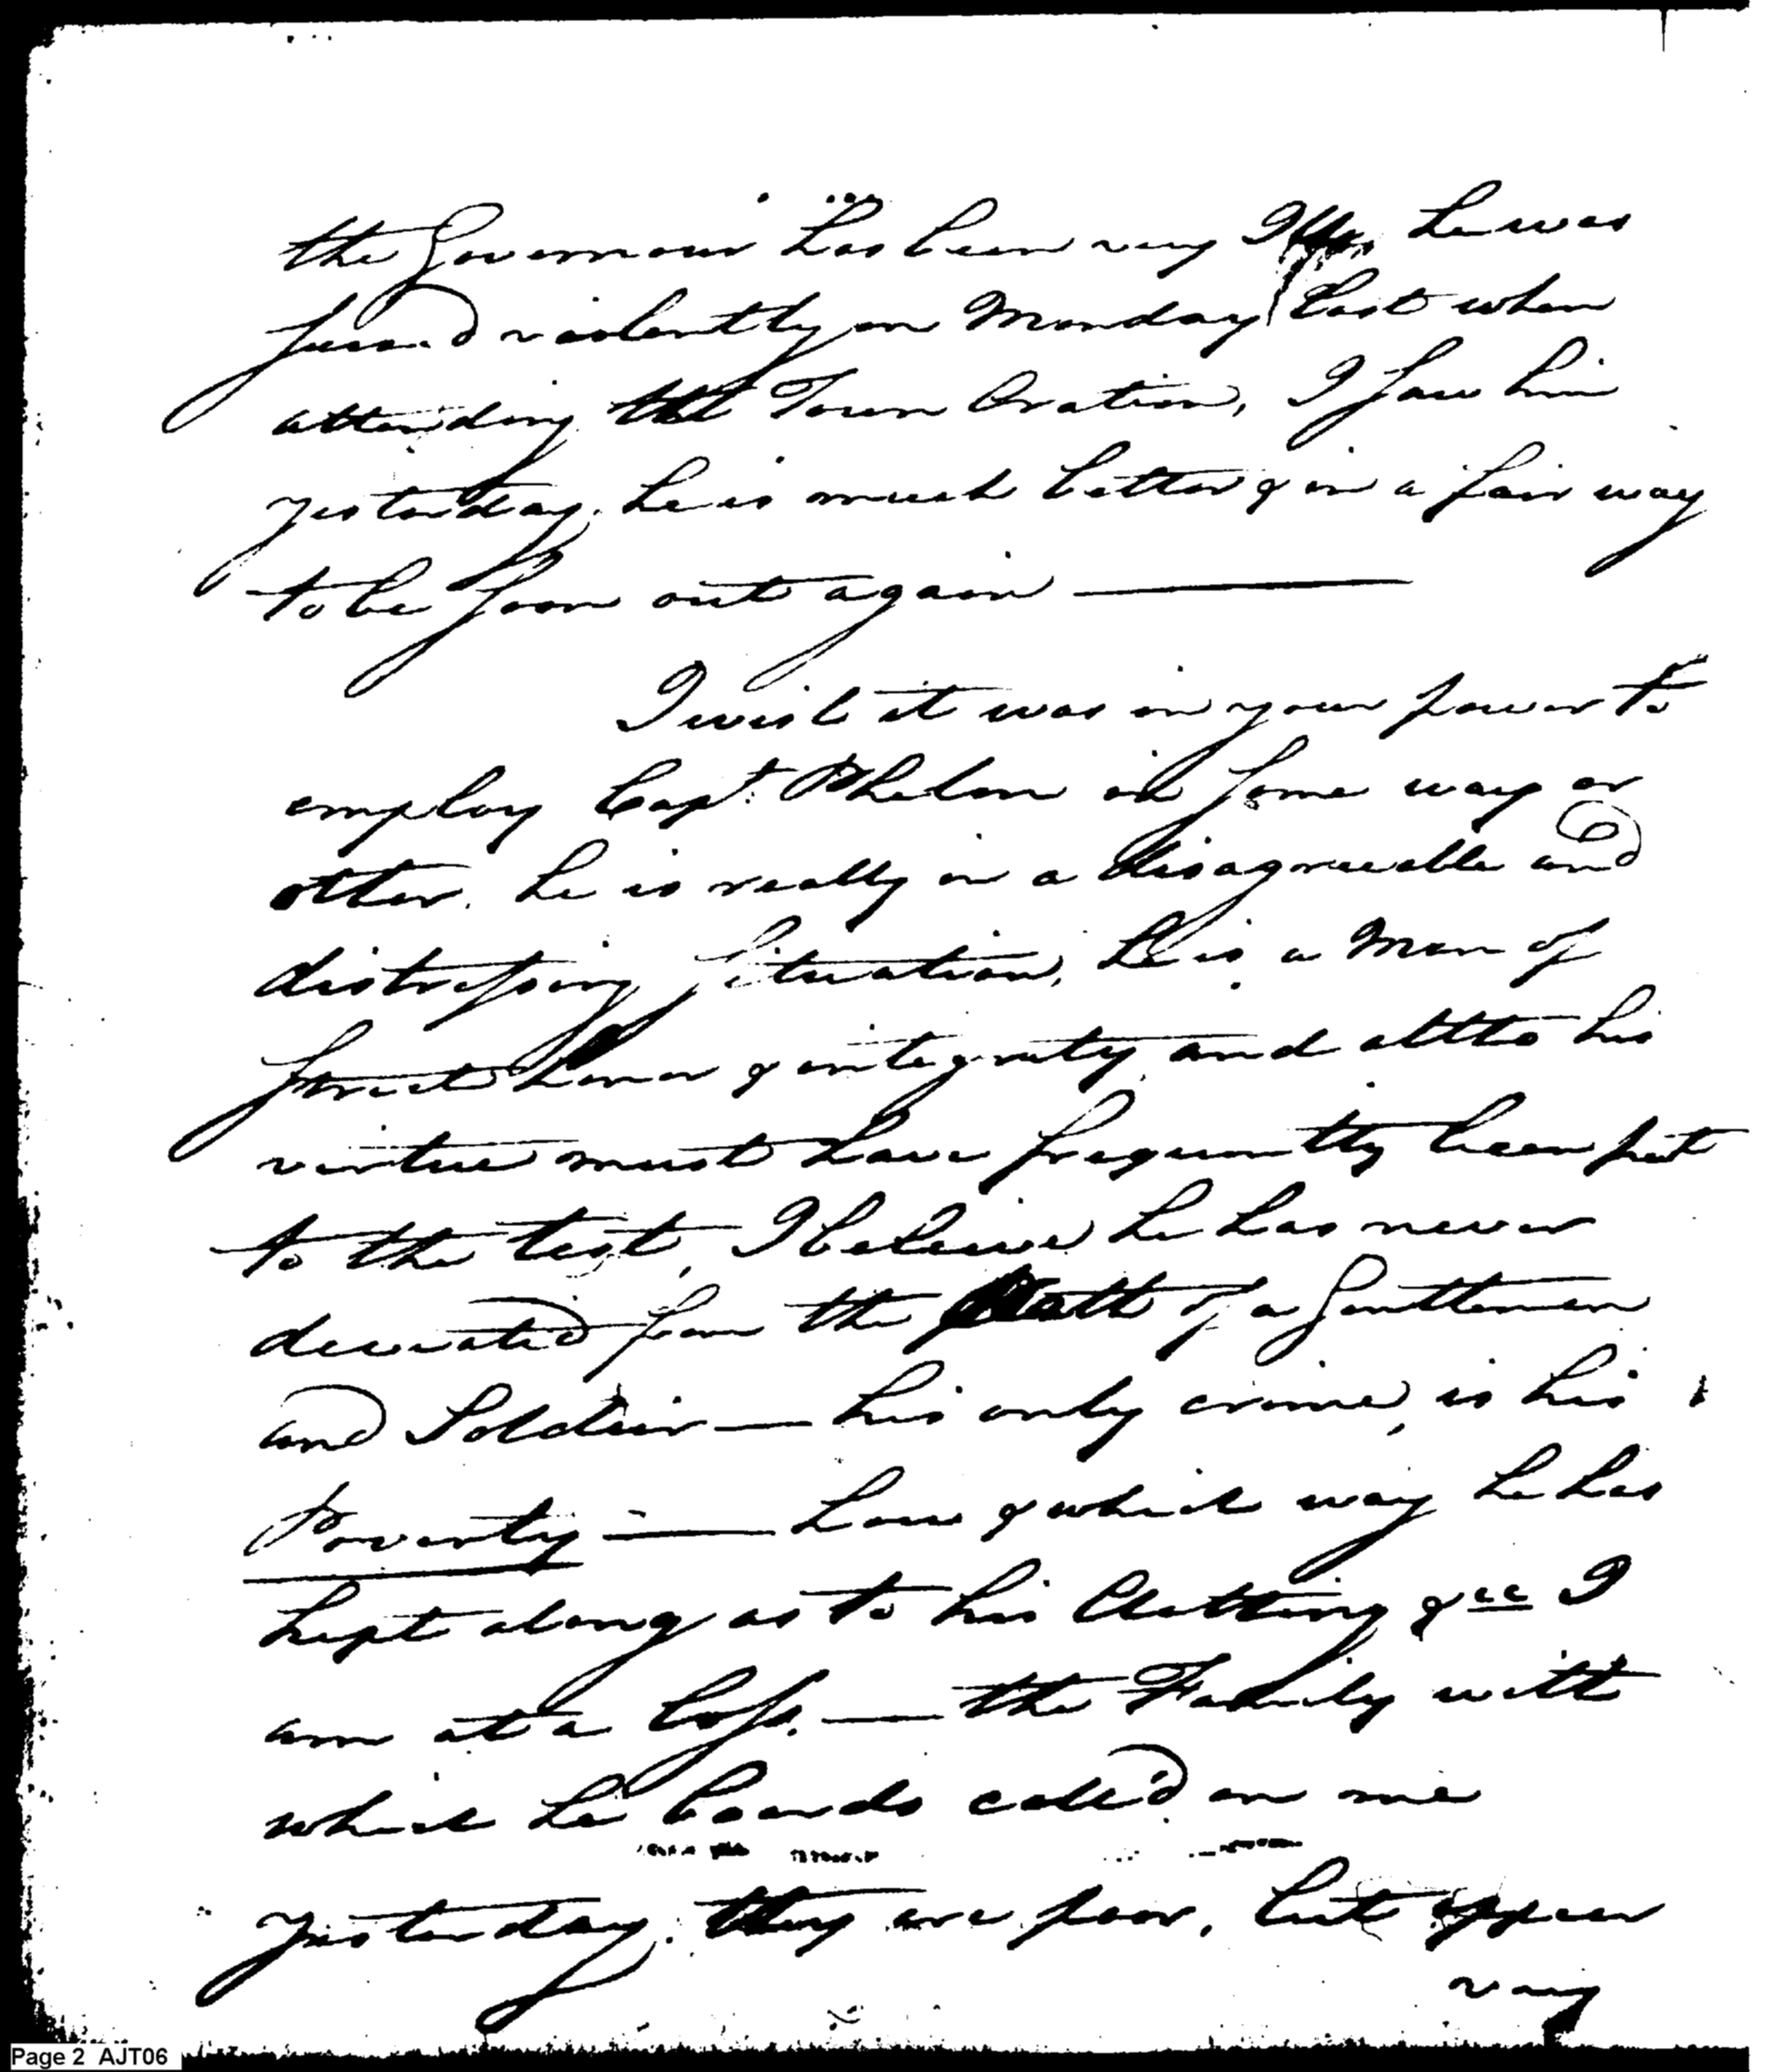 the Governour has been very Ill, he was
seised violently on Monday last when
attending the Town Oration, I saw him
yesterday. he is much better & in a fair way
to be soon out again —
I wish it was in your power to
employ Capt. Phelon in some way or
other. he is really in a disagreeable and
distressing situation, he is a Man of
strict honor & integrity, and altho his
virtue must have frequently been put
to the test, I beleive he has never
deviated from the Path of a Gentleman
and Soldier — his only crime, is his
Poverty — how & which way he has
kept along as to his Clothing &cc I
am at a loss. — the Family with
which he boards call'd on me
yesterday. they are poor, but appear
very
Page 2 AJT06